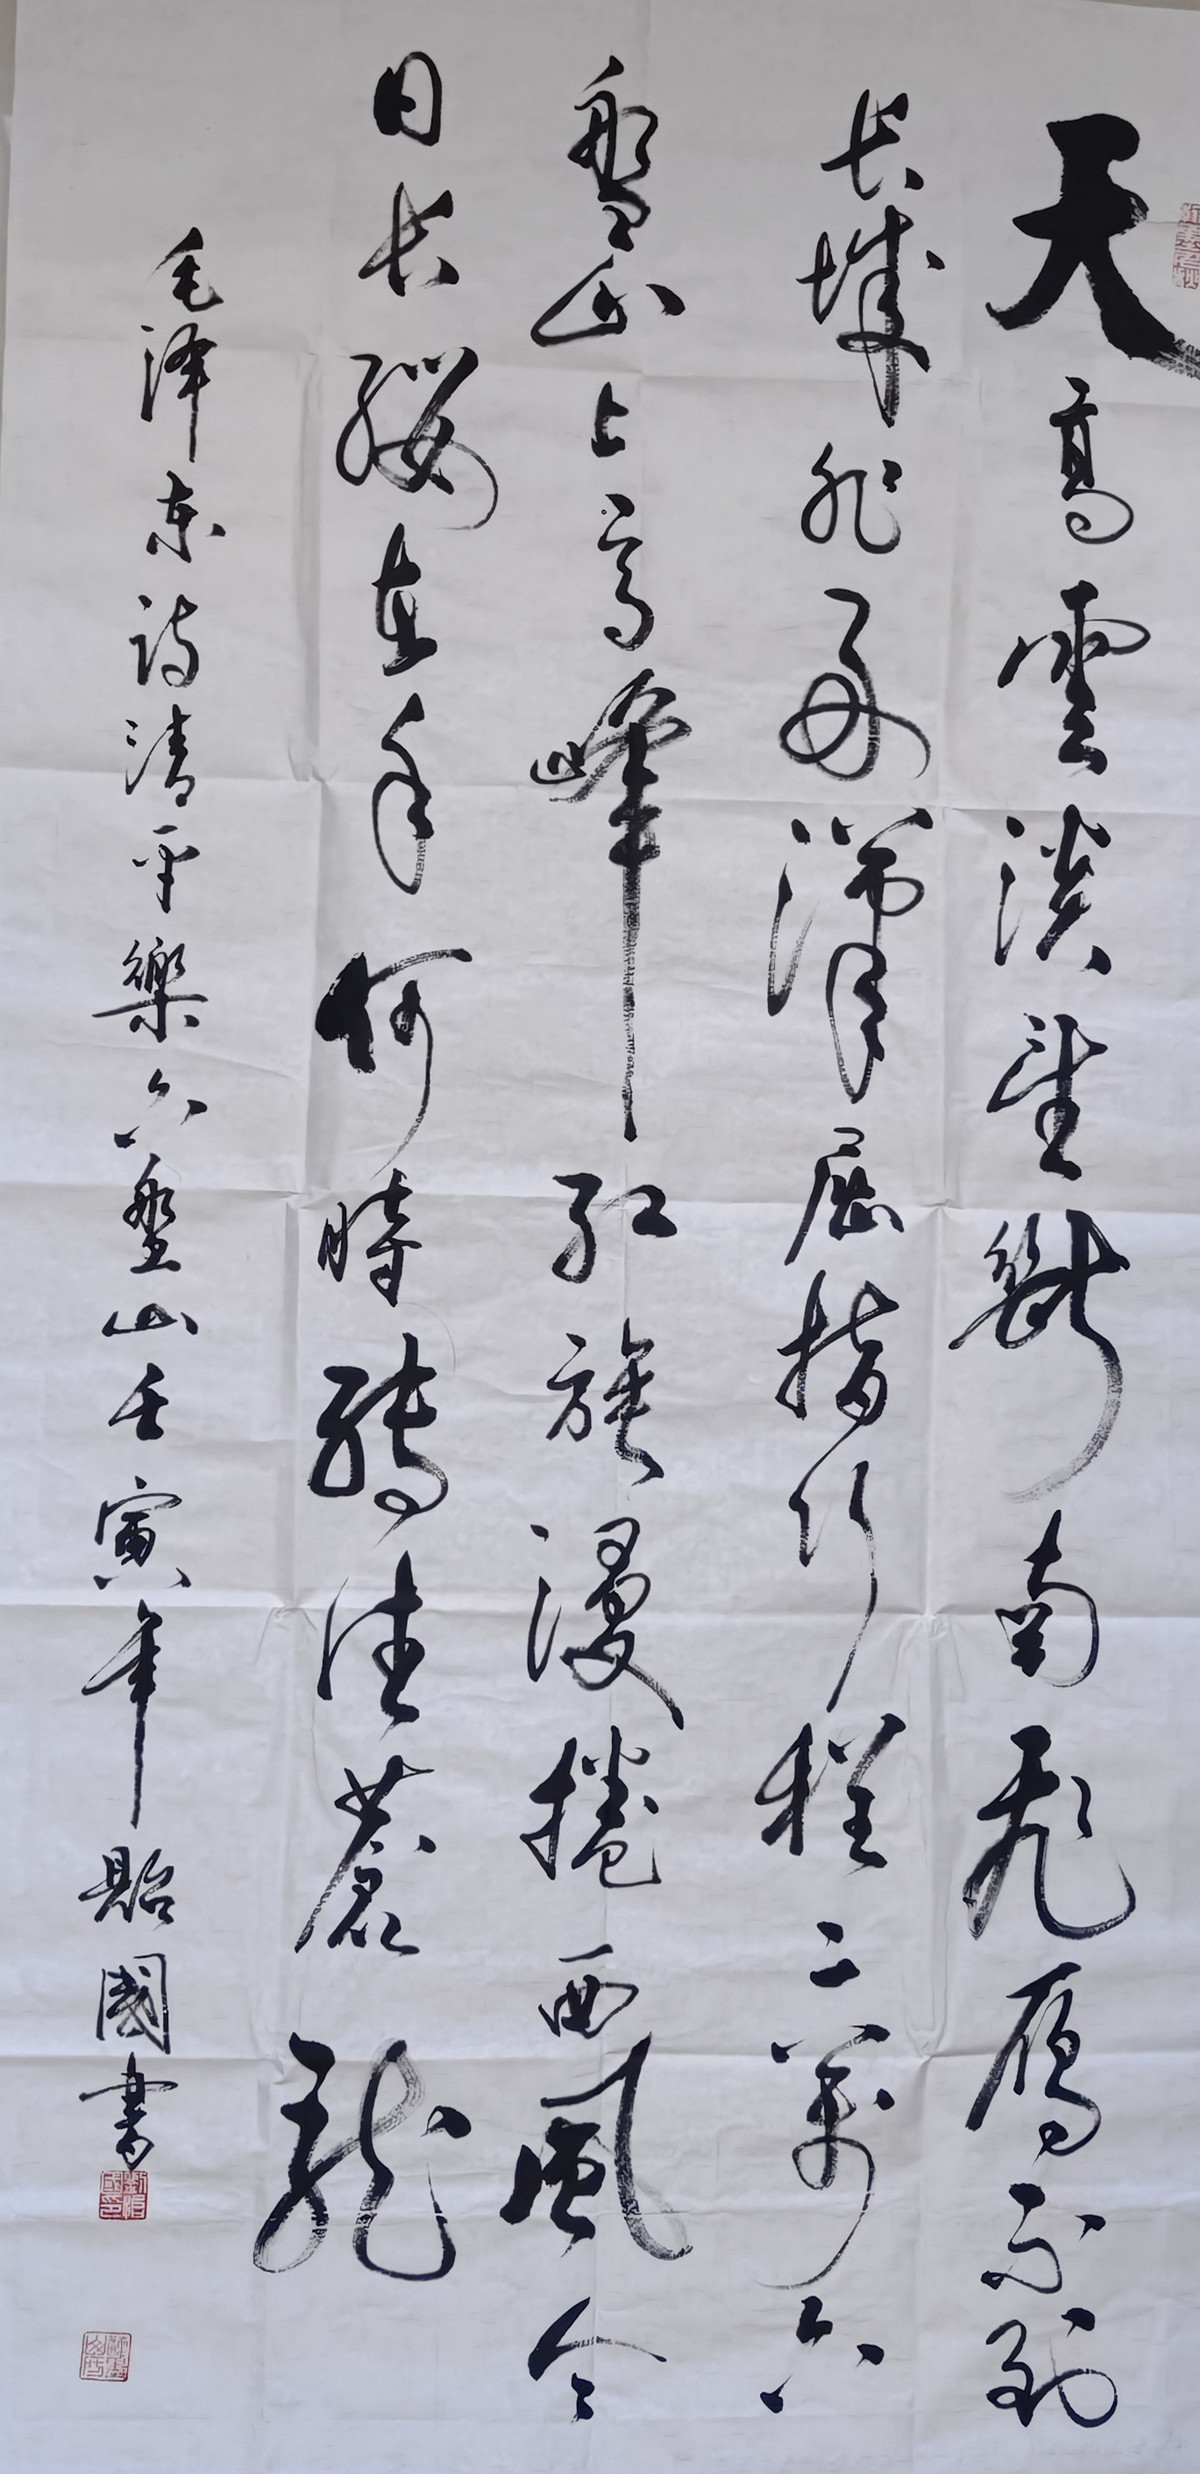 天高雲淡望斷南飛雁不到
长城非好漢屈指行程二萬六
盤山上高峰红旗漫捲西風今
日长缨在手何時缚住蒼龍
毛泽东诗清平樂六盤山壬寅年貽國書
劉貽國印